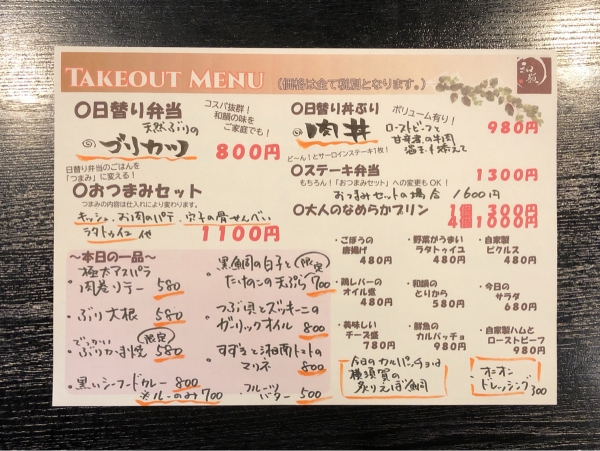 TAKEOUT MENU （価格は全て税別となります。）
和颯
〇日替り弁当
コスパ抜群！
和韻の味を
ご家庭でも！
天然ぶりの
ブリカツ
800円
日替り弁当のごはんを
「つまみ」に変える！
〇おつまみセット
つまみの内容は仕入れにより変わります。
キッシュ、お肉のパテ、穴子の骨せんべい
ラタトゥイユ 他
1100円
〇日替り丼ぶり
ボリューム有り！
肉丼
ローストビーフと
甘辛煮の牛肉
温玉を添えて
980円
ど～ん！とサーロインステーキ1枚！
〇ステーキ弁当
1300円
もちろん！「おつまみセット」への変更もOK！
おつまみセットの場合 1600円
〇大人のなめらかプリン
1個 300円
4個 1000円
～本日の一品～
極太アスパラ
肉巻フリテー 580
・ぶり大根 580
でっかい
ぶりかま焼 限定 580
・黒いシーフードカレー 800
※ルーのみ 700
・黒鯛の白子と 限定
たけのこの天ぷら 700
・つぶ貝とズッキーニの
ガーリックオイル 800
・すずきと湘南トマトの
マリネ 800
・フルーツ
バター 500
・ごぼうの
唐揚げ
480円
・野菜がうまい
ラタトゥイユ
480円
・自家製
ピクルス
480円
・鶏レバーの
オイル煮
480円
・和韻の
とりから
580円
・今日の
サラダ
680円
・美味しい
チーズ盛
780円
・鮮魚の
カルパッチョ
980円
・自家製ハムと
ローストビーフ
980円
今日のカルパッチョは
横須賀の
炙りえぼ鯛
オニオン
ドレッシング
300